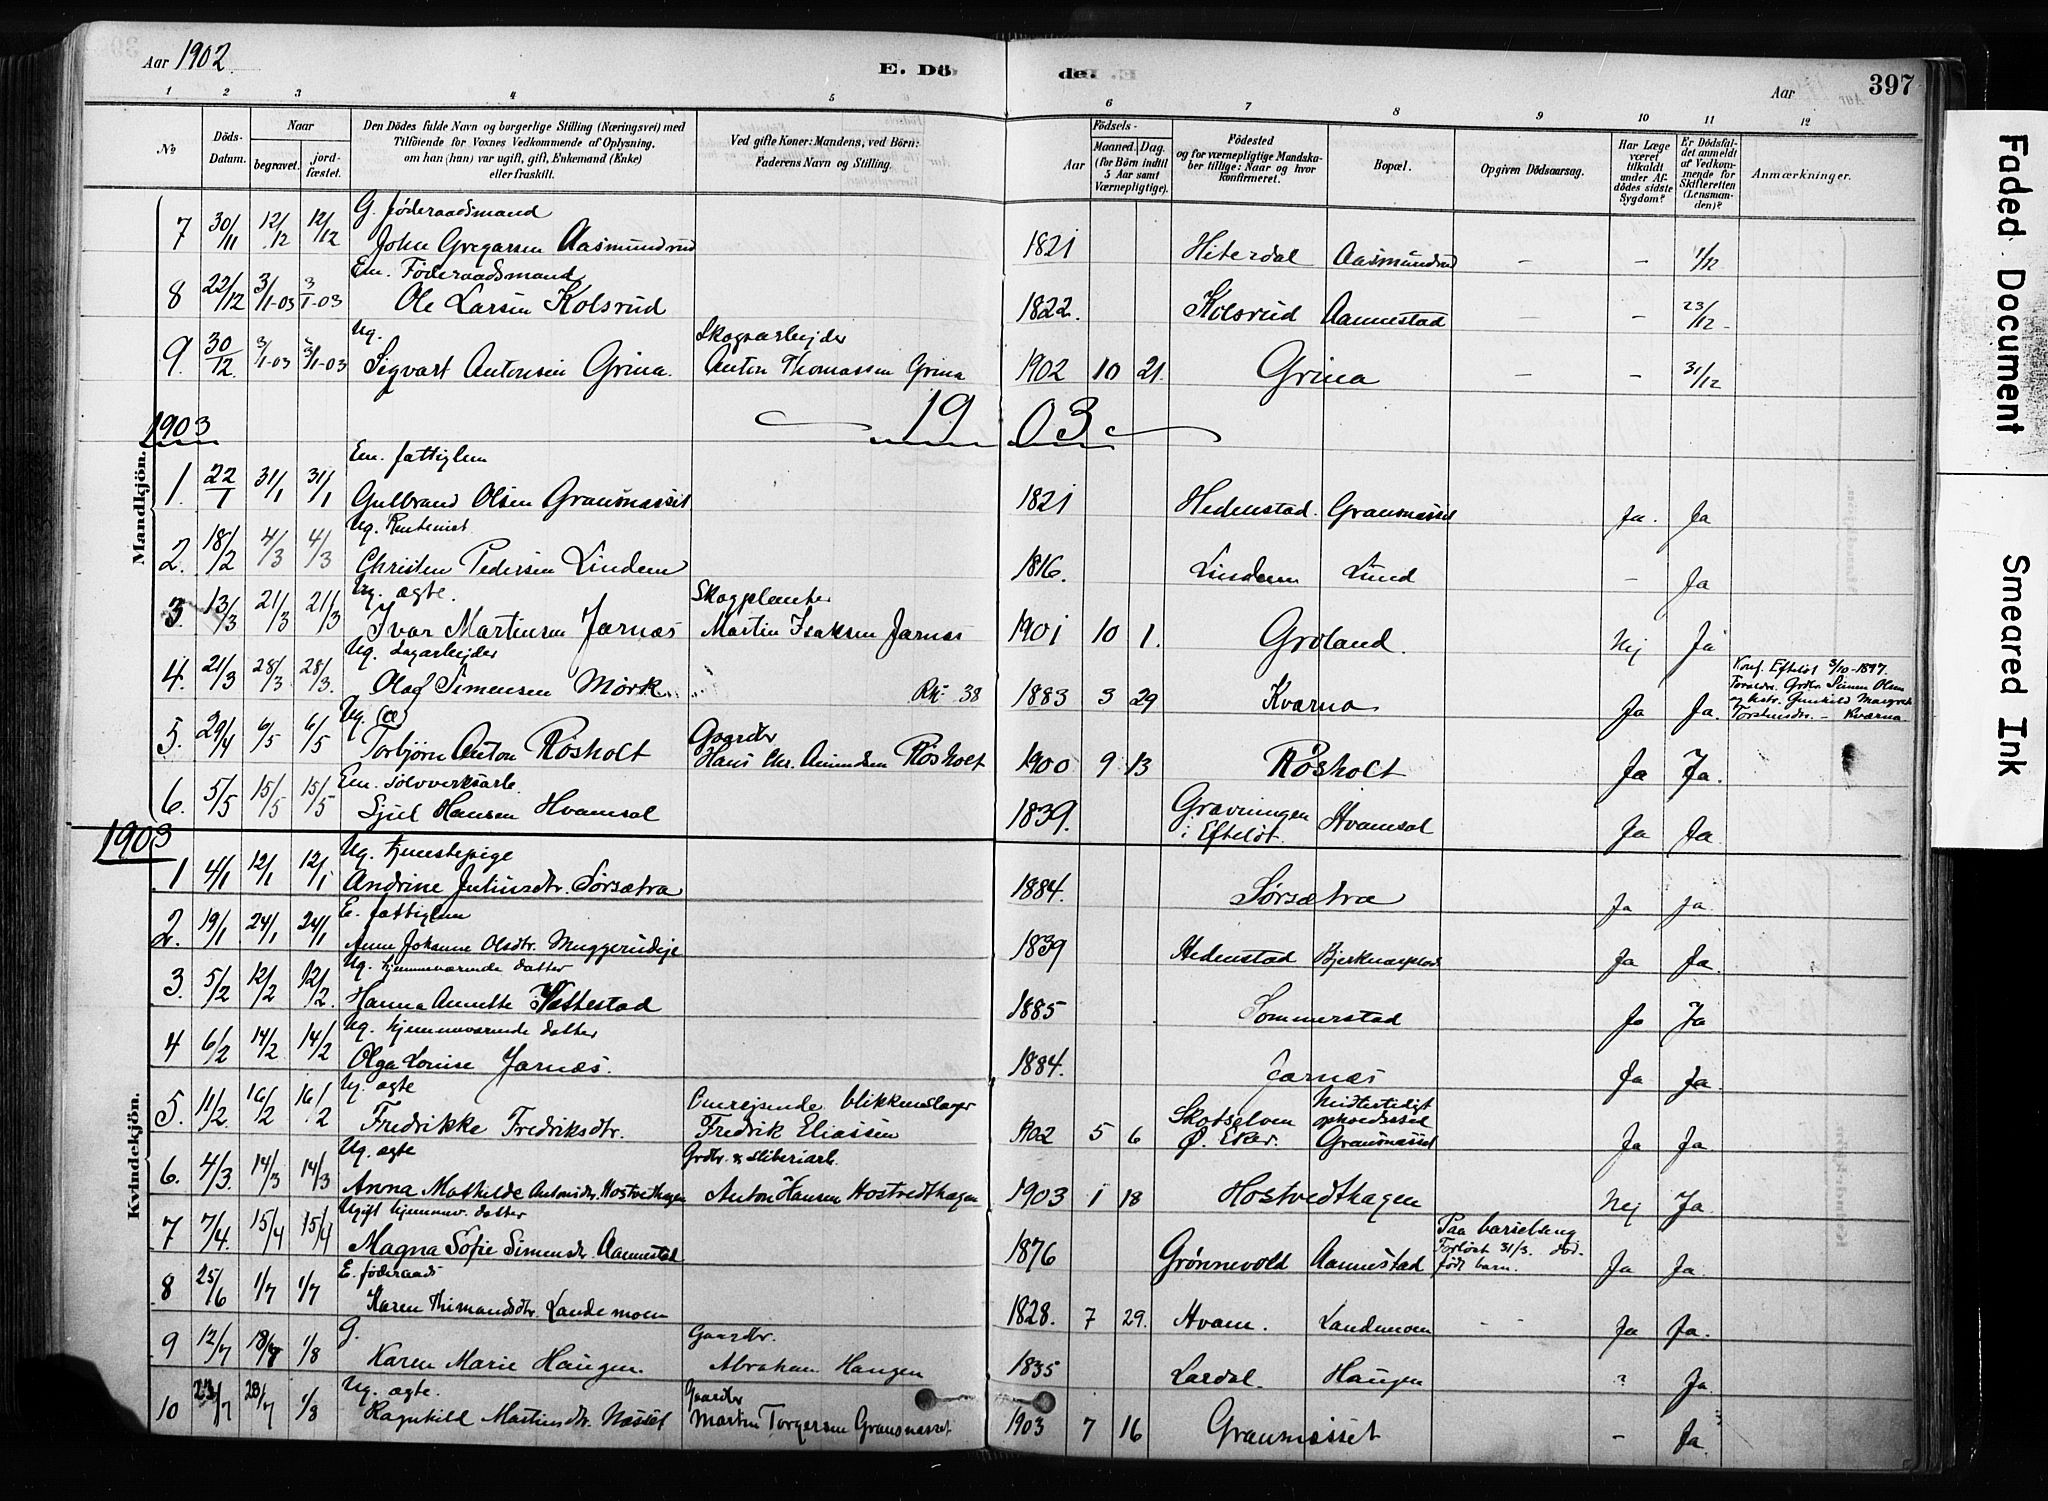 Aar 1902.
E. Döde.
Aar
397
1 2 3 4 5 6 7 8 9 10 11 12
No
Döds-Datum.
Naar
begravet.
jord-fæstet.
Den Dödes fulde Navn og borgerlige Stilling (Næringsvei) med Tilföiende for Voxnes Vedkommende af Oplysning, om han (hun) var ugift, gift, Enkemand (Enke) eller fraskilt.
Ved gifte Koner: Mandens, ved Börn: Faderens Navn og Stilling.
Födsels-
Aar
Maaned.
Dag.
(for Börn indtil 5 Aar samt Værnepligtige).
Födested og for værnepligtige Mandskaber tillige: Naar og hvor konfirmeret.
Bopæl.
Opgiven Dödsaarsag.
Har Læge været tilkaldt under Afdödes sidste Sygdom?
Er Dödsfaldet anmeldt af Vedkommende for Skifteretten (Lensmanden)?
Anmærkninger.
Mandkjön.
7 30/11 12/12 12/12 G. föderaadsmand John Gregarsen Aasmundrud 1821 Hiterdal Aasmundrud - - 1/12
8 22/12 3/1-03 3/1-03 Em. Föderaadsmand Ole Larsen Kolsrud 1822. Kolsrud Aannestad - - 23/12
9. 30/12. 3/1-03 3/1-03 Ug. Sigvart Antonsen Grina. Skogsarbejder Anton Thomassen Grina 1902 10 21. Grina - - 31/12
1903
1903
1. 22/1 31/1 31/1 Em. fattiglem Gulbrand Olsen Gransnasset 1821 Hedenstad. Gransnasset Ja. Ja
2. 18/2 4/3 4/3 Ug. Rentenist Christen Pedersen Lindem 1816. Lindem Lund - Ja
3. 13/3 21/3 21/3 Ug. ægte. Ivar Martinsen Jarnæs Skogplanter Martin Isaksen Jarnæs 1901 10 1. Groland. Nej Ja
4. 21/3 28/3 28/3. Ug. Sagarbejder Olaf Simensen Mørk 38 1883 3 29 Kværna Ja Ja. Konf. Efteløt 3/10-1897. Forældr. Grdbr. Simen Olsen og hstr. Gunhild Margreth Kværna
5. 29/4 6/5 6/5 Ug. (æ) Torbjørn Anton Røsholt Gaardbr Hans Chr. Amundsen Røsholt 1900 9 13 Røsholt Ja Ja.
6. 5/5 15/5 15/5 Em. sølvverksarb. Sjul Hansen Hvamsal 1839. Gravningen i Efteløt. Hvamsal Ja Ja.
1903
Kvindekjön.
1 4/1 12/1 12/1 Ug. tjenestepige Andrine Juliusdtr. Sørsætra 1884. Sørsætra Ja Ja.
2. 19/1 24/1 24/1 E. fattiglem Anne Johanne Olsdtr. Muggerudeje 1839 Hedenstad Ja Ja.
3. 5/2 12/2 12/2. Ug. hjemmeværende datter Hanna Annette Vattestad 1885 Sommerstad Ja Ja
4 6/2 14/2 14/2 Ug. hjemmeværende datter Olga Louise Jarnæs. 1884. Jarnæs Ja Ja
5. 11/2. 16/2 16/2 Ug. ægte Fredrikke Fredriksdtr. Omrejsende blikkenslager Fredrik Eliassen 1902 5 6 Skotselven Ø. Eker. Midlertidigt opholdssted Gransnasset Ja Ja.
6. 4/3. 14/3 14/3 Ug. ægte Anna Mathilde Antonsdtr. Hostvedthagen Grdbr. & sliberiarb. Anton Hansen Hostvedthagen 1903 1 18 Hostvedthagen Nej Ja.
7 7/4. 15/4 15/4 Ugift hjemmev. datter Magna Sofie Simensdtr. Aannestad 1876 Grønnevold Aannestad Paa barselseng Forløst 31/3. død-født barn. Ja Ja.
8 25/6 1/7 1/7 E. føderaads Karen Thimandsdtr. Landemoen 1828. 7 29. Hvam. Landemoen - - Ja Ja.
9 12/7 18/7 1/8 G. Karen Marie Haugen. Gaardbr. Abraham Haugen 1835 Lardal. Haugen ? Ja
10 23/7 28/7 1/8 Ug. ægte. Ragnhild Martinsdtr. Næsset Gaardbr Martin Torgersen Gransnasset 1903 7 16 Gransnasset - Ja.
Faded Document
Smeared Ink